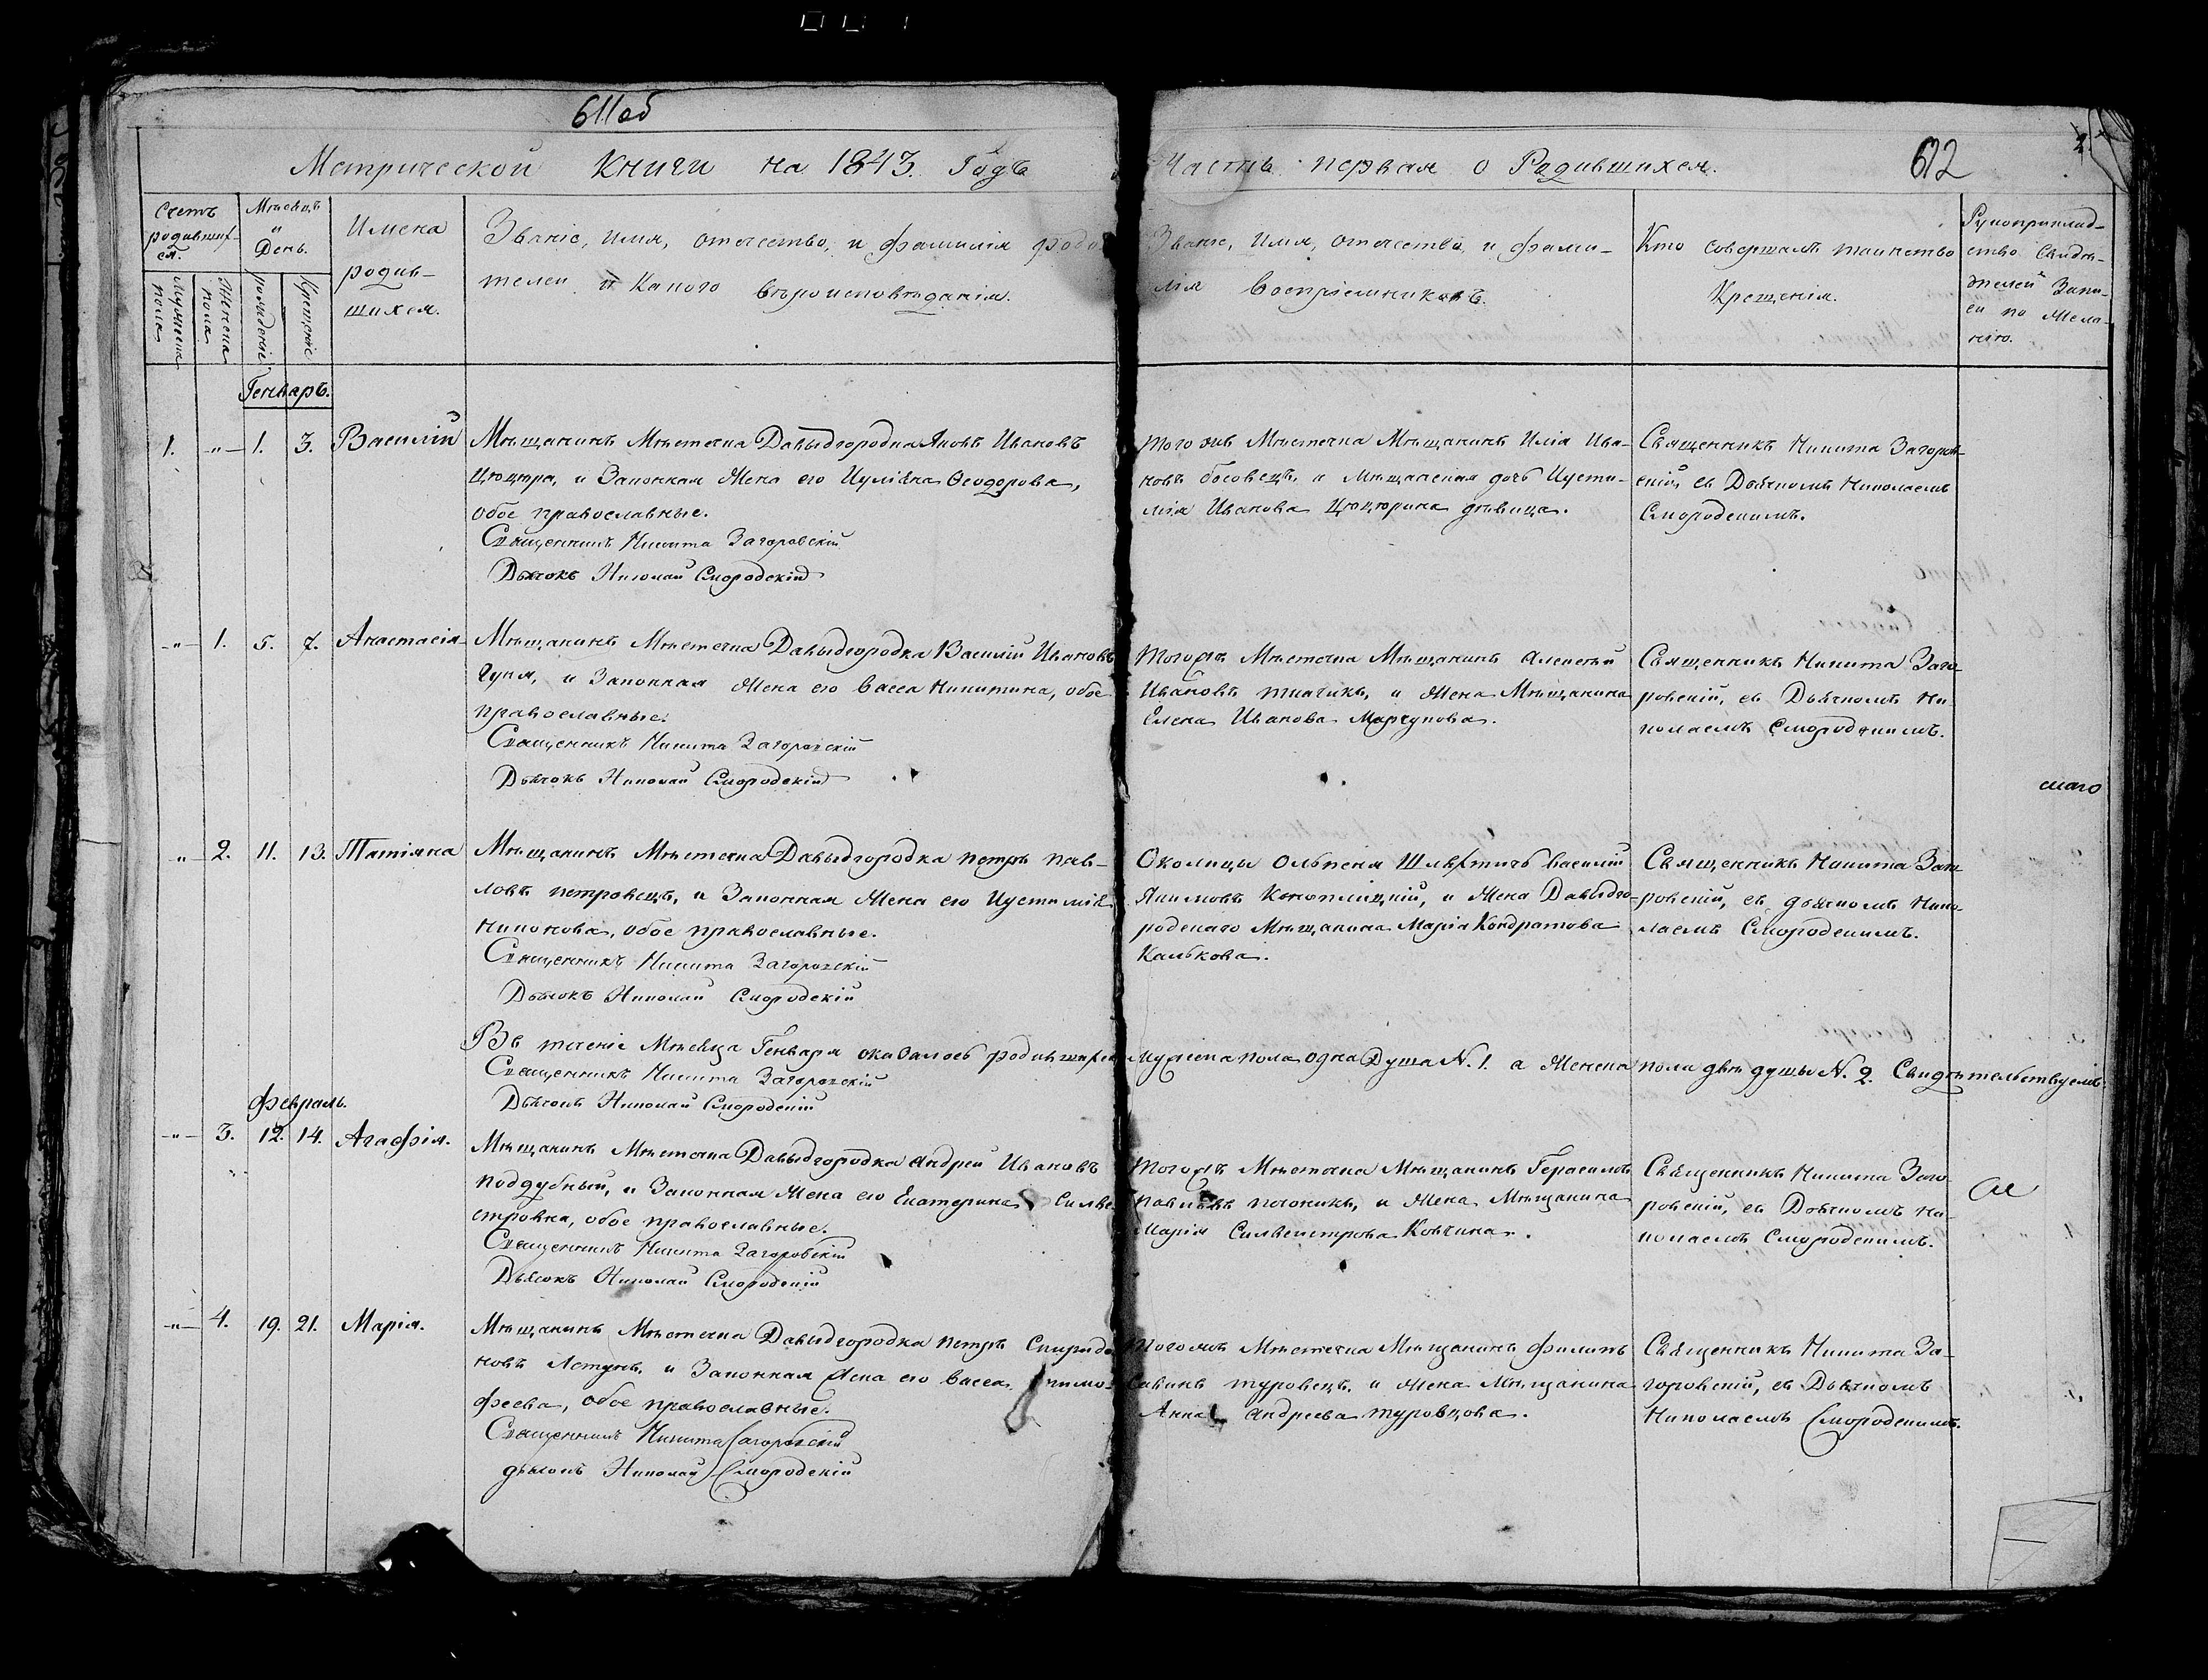 611об
Метрической Книги на 1843. Годъ
Часть первая о Родившихся.
612
Счетъ родившихся.
Мужеска пола
Женска пола
Мѣсяцъ и День.
Рожденіе
Крещеніе
Имена
родив-
шихся.
Званіе, имя, отечество, и фамилія роди-
телей и Какого вѣроисповѣданія.
Званіе, имя, отечество, и фами-
лія Воспріемниковъ.
Кто совершалъ таинство
Крещенія.
Рукоприклад-
ство Свидѣ-
телей Запи-
си по Жела-
нію.
Генварь.
1. -"- 1. 3. Василій
Мѣщанинъ Мѣстечка Давыдгородка Яковъ Ивановъ
Цюцюра, и Законная Жена его Иуліана Ѳеодорова,
обое православные.
Священникъ Никита Загоровскій
Дьячокъ Николай Смородскій
Того жъ Мѣстечка Мѣщанинъ Илія Ива-
новъ босовецъ, и Мѣщанская дочь Иусти-
мія Иванова Цюцюрина дѣвица.
Священникъ Никита Загоров-
скій, съ Дьячкомъ Николаемъ
Смородскимъ.
-"- 1. 5. 7. Анастасія
Мѣщанинъ Мѣстечка Давыдгородка Василій Ивановъ
Чупя, и Законная Жена его Васса Никитина, обое
православные.
Священникъ Никита Загоровскій
Дьячокъ Николай Смородскій
Тогожъ Мѣстечка Мѣщанинъ Алексѣй
Ивановъ ткачикъ, и Жена Мѣщанина
Елена Иванова Марчукова.
Священникъ Никита Заго-
ровскій, съ Дьячкомъ Ни-
колаемъ Смородскимъ.
-"- 2. 11. 13. Татіяна
Мѣщанинъ Мѣстечка Давыдгородка петръ пав-
ловъ петровецъ, и Законная Жена его Иустимія
Никонова, обое православные.
Священникъ Никита Загоровскій
Дьячокъ Николай Смородскій
Околицы Ольпеня Шляхтичъ Василій
Якимовъ Коноплицкій, и Жена Давыдго-
родскаго Мѣщанина Марія Кондратова
Калькова.
Священникъ Никита Заго-
ровскій, съ дьячкомъ Нико-
лаемъ Смородскимъ.
Въ теченіе Мѣсяца Генваря оказалось родившихся Мужеска пола одна Душа N. 1. а Женска пола двѣ души N. 2. Свидѣтельствуемъ.
Священникъ Никита Загоровскій
Дьячокъ Николай Смородскій
Февраль.
-"- 3. 12. 14. Агафія.
Мѣщанинъ Мѣстечка Давыдгородка Андрей Ивановъ
поддубный, и Законная Жена его Екатерина Сильве-
стровна, обое православные.
Священникъ Никита Загоровскій
Дьячокъ Николай Смородскій
Тогожъ Мѣстечка Мѣщанинъ Герасимъ
павловъ, и Жена Мѣщанина
Марія Сильвестрова Ковчина.
Священникъ Никита Заго-
ровскій, съ Дьячкомъ Ни-
колаемъ Смородскимъ.
-"- 4. 19. 21. Марія.
Мѣщанинъ Мѣстечка Давыдгородка петръ Спиридо-
новъ Лстунъ, и Законная Жена его Васса тимо-
феева, обое православные.
Священникъ Никита Загоровскій
дьячокъ Николай Смородскій
Тогожъ Мѣстечка Мѣщанинъ Филипъ
Савинъ туровецъ, и Жена Мѣщанина
Анна Андреева туровцова.
Священникъ Никита За-
горовскій, съ Дьячкомъ
Николаемъ Смородскимъ.